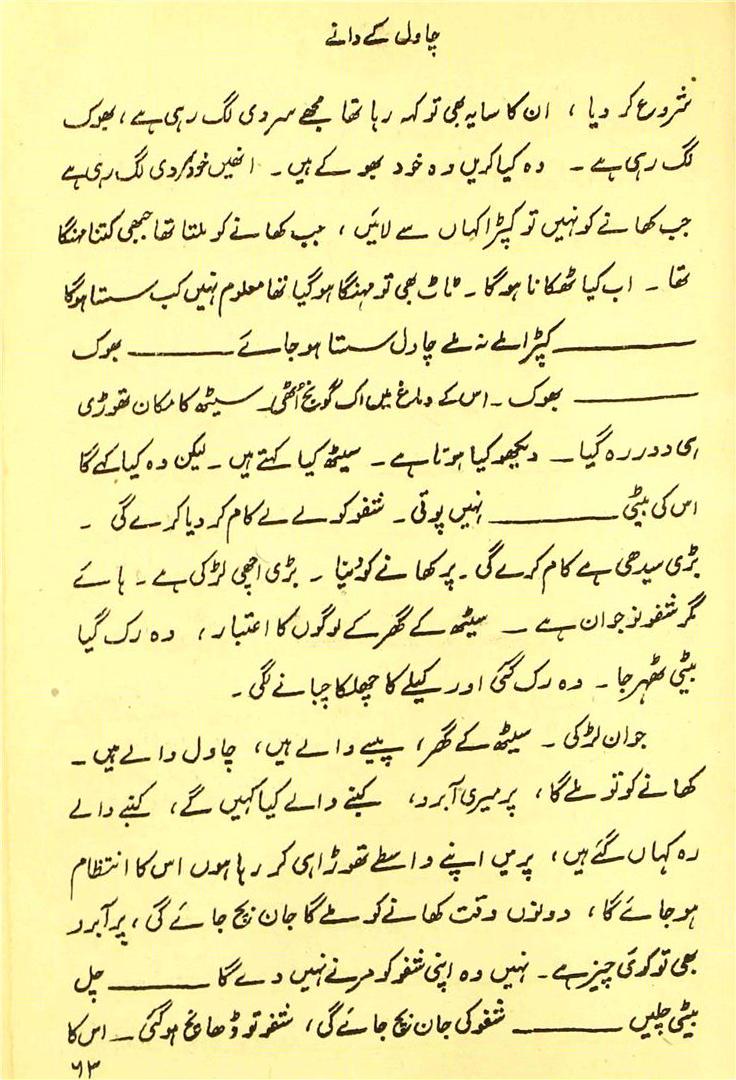 چاول کے دانے
شروع کر دیا ، ان کا سایہ بھی تو کہہ رہا تھا مجھے سردی لگ رہی ہے ، بھوک
لگ رہی ہے ۔ وہ کیا کریں وہ خود بھوکے ہیں ۔ انھیں خود سردی لگ رہی ہے
جب کھانے کو نہیں تو کپڑا کہاں سے لائیں ، جب کھانے کو ملتا تھا جبھی کتنا مہنگا
تھا ۔ اب کیا ٹھکانا ہوگا ۔ ٹاٹ بھی تو مہنگا ہوگیا تھا معلوم نہیں کب سستا ہوگا
——— کپڑا ملے نہ ملے چاول سستا ہو جائے ——— بھوک
——— بھوک ۔ اس کے دماغ میں اک گونج اُٹھی ۔ سیٹھ کا مکان تھوڑی
ہی دور رہ گیا ۔ دیکھو کیا ہوتا ہے ۔ سیٹھ کیا کہتے ہیں ۔ لیکن وہ کیا کہے گا
اس کی بیٹی ——— نہیں پوتی ۔ شفو کو لے لے کام کر دیا کرے گی ۔
بڑی سیدھی ہے کام کرے گی ۔ پر کھانے کو دینا ۔ بڑی اچھی لڑکی ہے ۔ ہائے
مگر شفو نوجوان ہے ۔ سیٹھ کے گھر کے لوگوں کا اعتبار ، وہ رک گیا
بیٹی ٹھہر جا ۔ وہ رک گئی اور کیلے کا چھلکا چبانے لگی ۔
جوان لڑکی ۔ سیٹھ کے گھر ، پیسے والے ہیں ، چاول والے ہیں ۔
کھانے کو تو ملے گا ، پر میری آبرو ، کہنے والے کیا کہیں گے ، کہنے والے
رہ کہاں گئے ہیں ، پر میں اپنے واسطے تھوڑا ہی کر رہا ہوں اس کا انتظام
ہو جائے گا ، دونوں وقت کھانے کو ملے گا جان بچ جائے گی ، پر آبرو
بھی تو کوئی چیز ہے ۔ نہیں وہ اپنی شفو کو مرنے نہیں دے گا ——— چل
بیٹی چلیں ——— شفو کی جان بچ جائے گی ، شفو تو ڈھانچ ہو گئی ۔ اس کا
۶۳